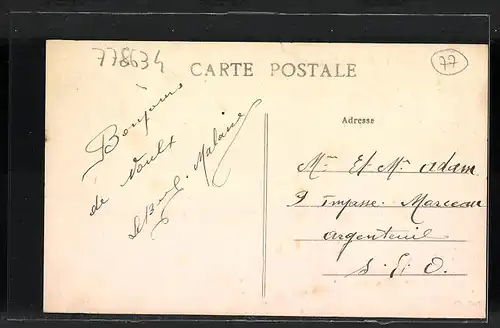 778634
77
CARTE POSTALE
Bonjour
de
Adresse
Mr Et Me Adam
9 impasse Marceau
argenteuil
S. Et O.